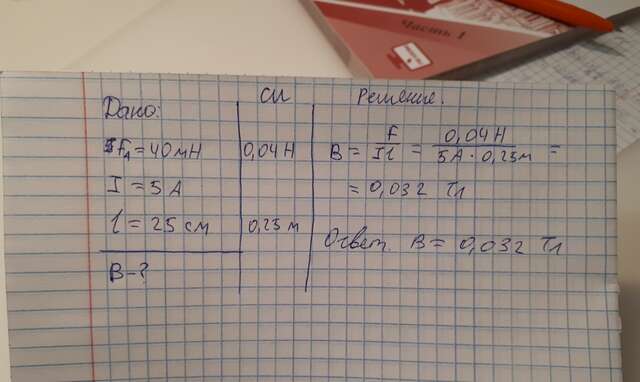 Часть 1
Дано:
Fд = 40 мН
I = 5 А
l = 25 см
B - ?
СИ
0,04 Н
0,25 м
Решение.
B = F / Il = 0,04 Н / 5А · 0,25м =
= 0,032 Тл
Ответ. B = 0,032 Тл